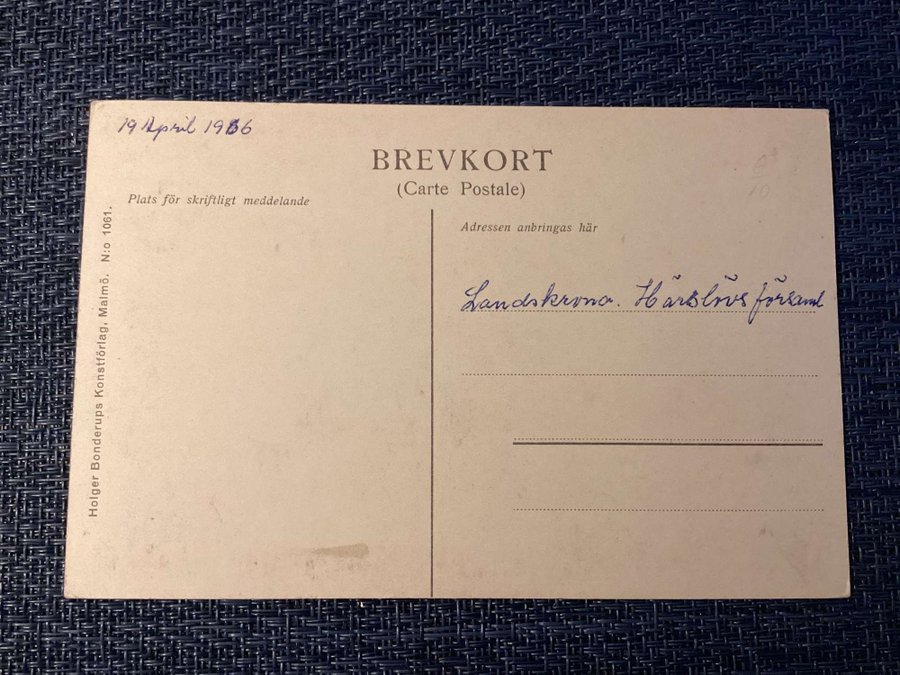 19 April 1916
BREVKORT
(Carte Postale)
Plats för skriftligt meddelande
Adressen anbringas här
Landskrona. Härslövs församl
Holger Bonderups Konstförlag, Malmö. N:o 1061.